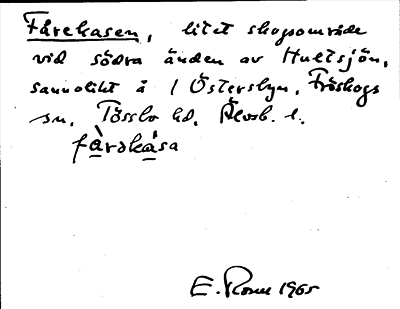 Fårekasen, litet skogsområde
vid södra änden av Hultsjön,
sannolikt å 1 Östersbyn, Fröskogs
sn. Tössbo hd. Älvsb. l.
fàrəkàsa
E. Rosell 1965